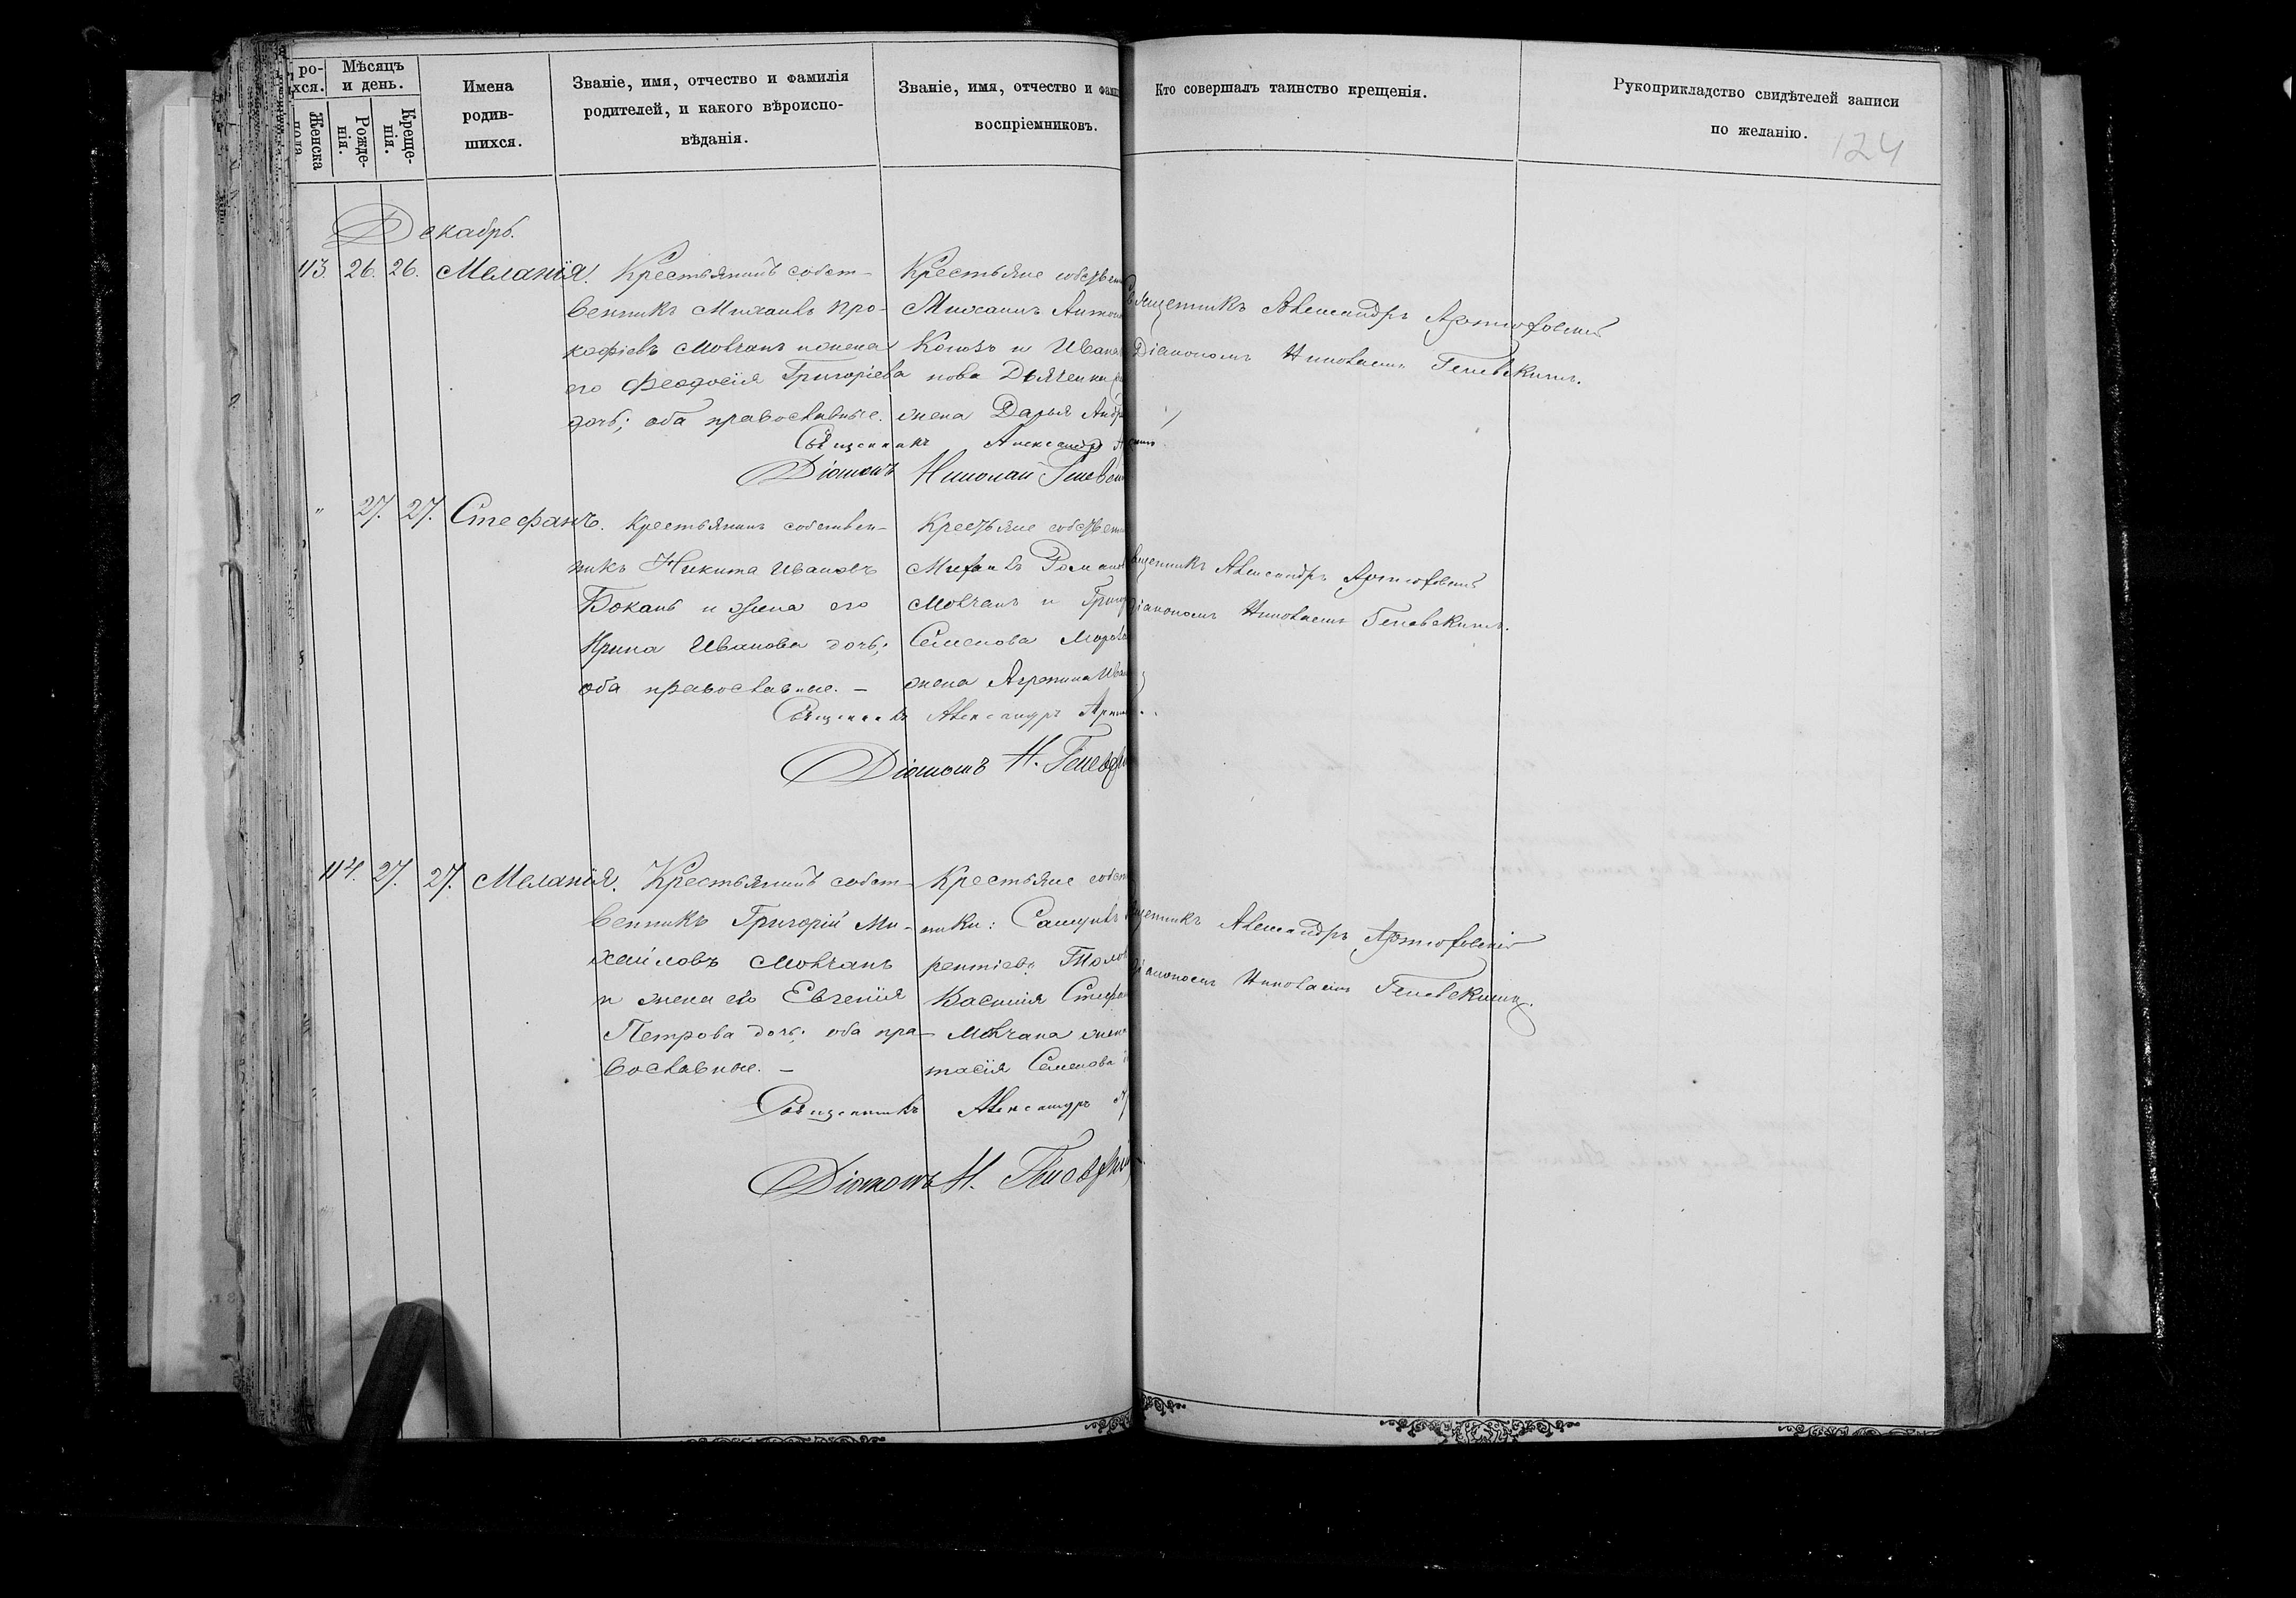 ро-
хся.
Мѣсяцъ
и день.
Женска
пола
Рожде-
нія.
Креще-
нія.
Имена
родив-
шихся.
Званіе, имя, отчество и фамилія
родителей, и какого вѣроиспо-
вѣданія.
Званіе, имя, отчество и фами
воспріемниковъ.
Кто совершалъ таинство крещенія.
Рукоприкладство свидѣтелей записи
по желанію.
124
Декабрь.
113. 26. 26. Меланія.
Крестьянинъ собст-
венникъ Михаилъ Про-
кофіевъ Мовчанъ и жена
его Феодосія Григоріева
дочь; оба православные.
Крестьяне собствен
Михаилъ Антон
и Иван
нова Дьяченки
жена Дарья Андр
Священникъ Александръ
Діаконъ Николай Геневск
вященникъ Александръ Артюховскій
Діакономъ Николаемъ Геневскимъ.
" 27. 27. Стефанъ.
Крестьянинъ собствен-
никъ Никита Ивановъ
Боканъ и жена его
Ирина Иванова дочь;
оба православные. —
Крестьяне собствен
Романов
Мовчанъ и Григор
Семенова Мороза
жена Агрепина Иван
Священникъ Александръ Артю
Діаконъ Н. Геневск
вященникъ Александръ Артюховскій
Діакономъ Николаемъ Геневскимъ.
114. 27. 27. Меланія.
Крестьянинъ собст-
венникъ Григорій Ми-
хайловъ Мовчанъ
и жена его Евгенія
Петрова дочь; оба пра-
вославные. —
Крестьяне собст
ники: Самуилъ
рентіевъ
Василія Стефан
Мовчана жена
тасія Семенова
Священникъ Александръ
Діаконъ Н. Геневскій
щенникъ Александръ Артюховскій
Діакономъ Николаемъ Геневскимъ.